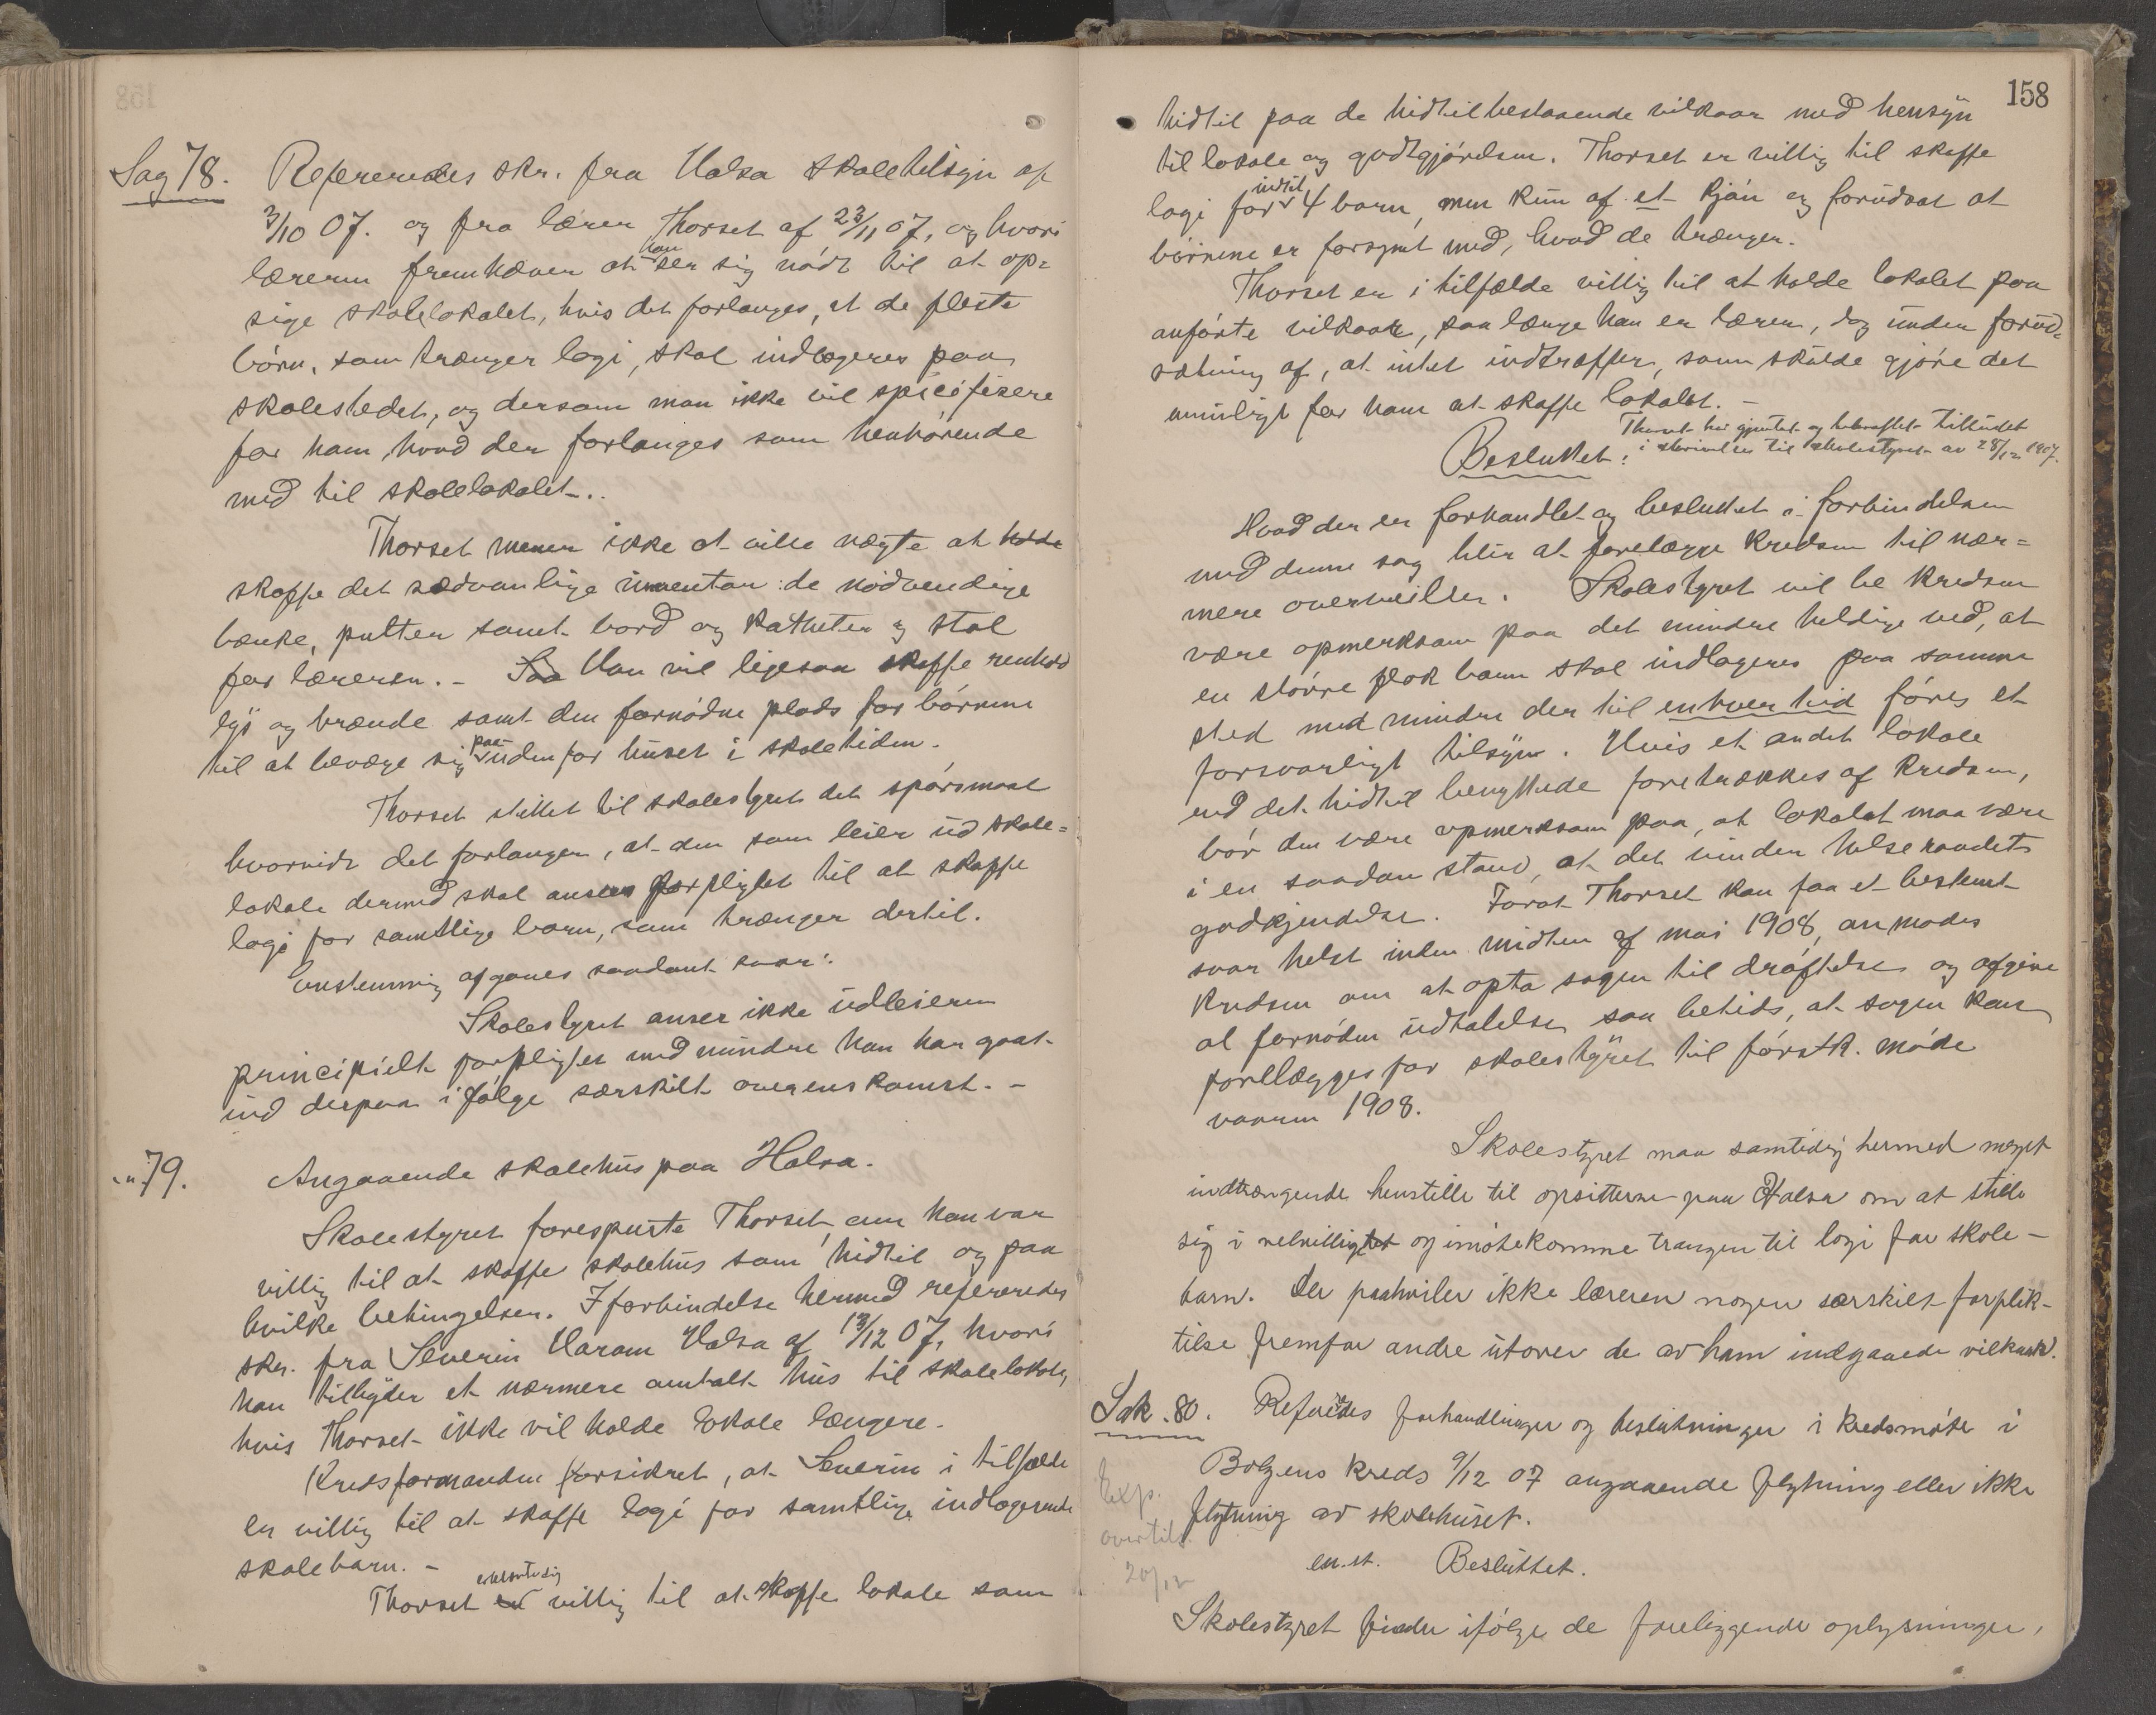 Sag 78. Refereredes skr. fra Halsa skoletilsyn af
3/10 07. og fra lærer Thorset af 23/11 07, og hvori
læreren fremhæver at han ser sig nödt til at op-
sige skolelokalet, hvis det forlanges, at de fleste
börn, som trænger logi, skal indlogeres paa
skolestedet, og dersom man ikke vil specifisere
for ham hvad der forlanges som henhørende
med til skolelokalet.
Thorset mener ikke at ville nægte at holde
skaffe det sædvanlige inventar: de nödvendige
bænke, pulter samt bord og katheter og stol
for læreren. - Saa Han vil ligesaa skaffe renhold
lys og brænde samt den fornödne plads for börnene
til at bevæge sig paa udenfor huset i skoletiden.
Thorset stillet til skolestyret det spörsmaal
hvorvidt det forlanger, at den som leier ud skole-
lokale dermed skal ansees forpligtet til at skaffe
logi for samtlige barn, som trænger dertil.
Enstemmig afgaves saadant svar:
Skolestyret anser ikke udleieren
principielt forpligtet med mindre han har gaat
ind derpaa ifölge særskilt overenskomst. -
" 79. Angaaende skolehus paa Halsa.
Skolestyret forespurte Thorset, om han var
villig til at skaffe skolehus som hidtil og paa
hvilke betingelser. I forbindelse hermed refereredes
skr. fra Severin Haram Halsa af 13/12 07, hvori
han tilbyder et nærmere omtalt hus til skolelokale,
hvis Thorset ikke vil holde lokale længere.
Kredsformanden forsikret, at Severin i tilfælde
er villig til at skaffe logi for samtlige indlogerende
skolebarn. -
Thorset er erklærte sig villig til at skaffe lokale som
158
hidtil paa de hidtil bestaaende vilkaar med hensyn
til lokale og godtgjörelsen. Thorset er villig til skaffe
logi for indtil 4 barn, men kun af et kjön og forudsat at
börnene er forsynt med, hvad de trænger.
Thorset er i tilfælde villig til at holde lokalet paa
anförte vilkaar, saa længe han er lærer, dog under forud-
sætning af, at intet indtræffer, som skulde gjöre det
umuligt for ham at skaffe lokalet. -
Thorset har gjentat og bekræftet tilbudet
i skrivelse til skolestyret av 28/12 1907.
Besluttet:
Hvad der er forhandlet og besluttet i forbindelsen
med denne sag blir at forelægge kredsen til nær-
mere overveielse. Skolestyret vil be kredsen
være opmerksom paa det mindre heldige ved, at
en större flok barn skal indlogeres paa samme
sted med mindre der til enhver tid föres et
forsvarligt tilsyn. Hvis et andet lokale
end det hidtil benyttede foretrækkes af kredsen,
bör den være opmerksom paa, at lokalet maa være
i en saadan stand, at det vinder helseraadets
godkjendelse. Forat Thorset kan faa et bestemt
svar helst inden midten af mai 1908, anmodes
kredsen om at opta sagen til dröftelse og afgive
al fornöden udtalelse saa betids, at sagen kan
forelægges for skolestyret til förstk. möde
vaaren 1908.
Skolestyret maa samtidig hermed meget
indtrængende henstille til opsitterne paa Halsa om at stille
sig i velvillighet og imötekomme trangen til logi for skole-
barn. Der paahviler ikke læreren nogen særskilt forplik-
telse fremfor andre utover de av ham indgaaede vilkaar.
Sak. 80. Refereredes forhandlinger og beslutninger i kredsmöte i
Bolgens kreds 9/12 07 angaaende flytning eller ikke
flytning av skolehuset.
Exp.
20/12
en.st. Besluttet.
Skolestyret finder ifölge de foreliggende oplysninger,